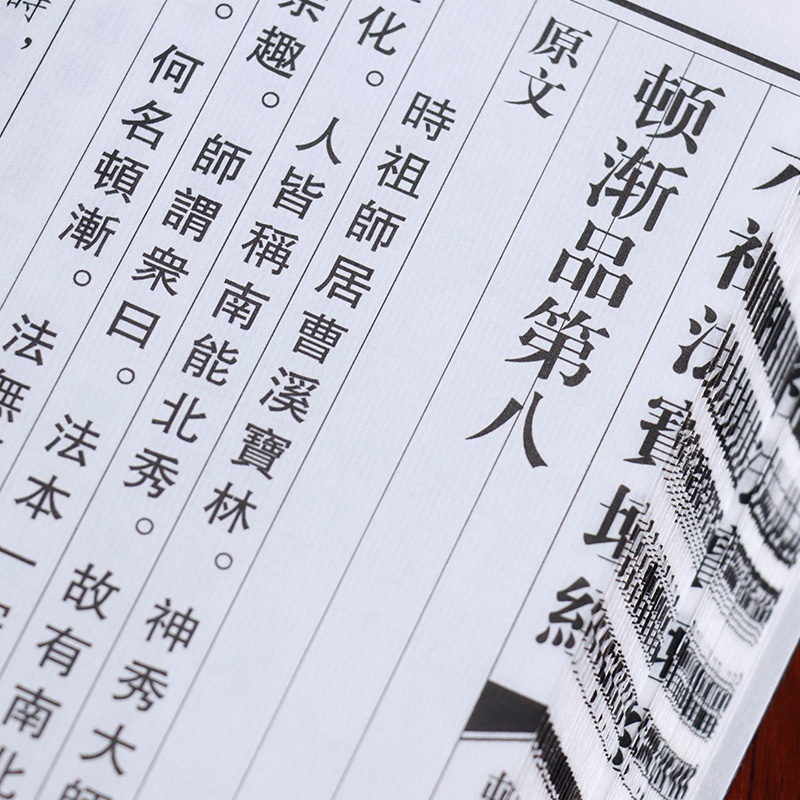 祖法寶壇經
顿渐品第八
原文
時祖師居曹溪寶林。神秀大師
化。人皆稱南能北秀。故有南北
趣。師謂衆曰。法本一
。何名頓漸。法無
時，